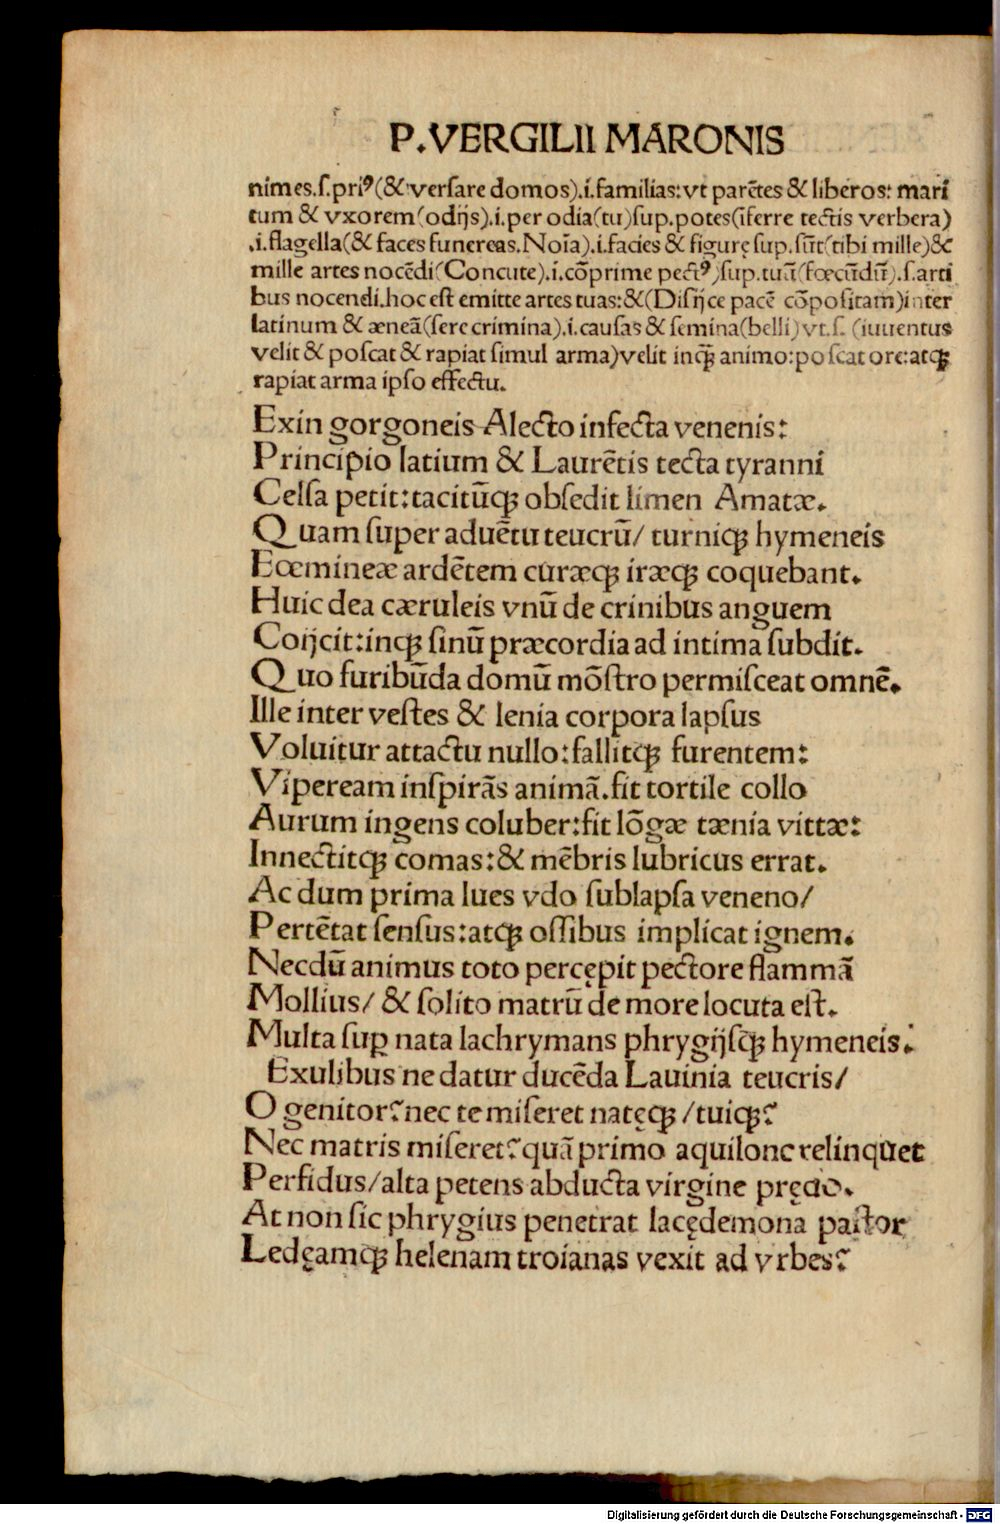 P.VERGILII MARONIS
nimes.ſ.priꝰ(& verſare domos).i.familias:vt parẽtes & liberos: mari
tum & vxorem(odijs).i.per odia(tu)ſup.potes(ĩferre tectis verbera)
.i.flagella(& faces funereas.Noĩa).i.facies & figurę ſup.ſũt(tibi mille)&
mille artes nocẽdi(Concute).i.cõprime pectꝰ)ſup.tuã(fœcũdũ).ſ.arti
bus nocendi.hoc eſt emitte artes tuas:&(Diſijce pacẽ cõpoſitam)inter
latinum & æneã(ſere crimina).i.cauſas & ſemina(belli)vt.ſ.(iuuentus
velit & poſcat & rapiat ſimul arma)velit inꝗ̃ animo:poſcat ore:atqꝫ
rapiat arma ipſo effectu.
Exin gorgoneis Alecto infecta venenis:
Principio latium & Laurẽtis tecta tyranni
Celſa petit:tacitũqꝫ obſedit limen Amatæ.
Quam ſuper aduẽtu teucrũ/ turniqꝫ hymeneis
Eœmineæ ardẽtem curæqꝫ iræqꝫ coquebant.
Huic dea cæruleis vnũ de crinibus anguem
Coijcit:inqꝫ ſinũ præcordia ad intima ſubdit.
Quo furibũda domũ mõſtro permiſceat omnẽ.
Ille inter veſtes & lenia corpora lapſus
Voluitur attactu nullo:fallitqꝫ furentem:
Vipeream inſpirãs animã.fit tortile collo
Aurum ingens coluber:fit lõgæ tænia vittæ:
Innectitqꝫ comas:& mẽbris lubricus errat.
Ac dum prima lues vdo ſublapſa veneno/
Pertẽtat ſenſus:atqꝫ oſſibus implicat ignem.
Necdũ animus toto percępit pectore flammã
Mollius/ & ſolito matrũ de more locuta eſt.
Multa ſuꝑ nata lachrymans phrygijſqꝫ hymeneis:
Exulibus ne datur ducẽda Lauinia teucris/
O genitor?nec te miſeret natęqꝫ/tuiqꝫ?
Nec matris miſeret?quã primo aquilone relinquet
Perfidus/alta petens abducta virgine prędo.
At non ſic phrygius penetrat lacędemona paſtor
Ledęamqꝫ helenam troianas vexit ad vrbes?
Digitalisierung gefördert durch die Deutsche Forschungsgemeinschaft - DFG